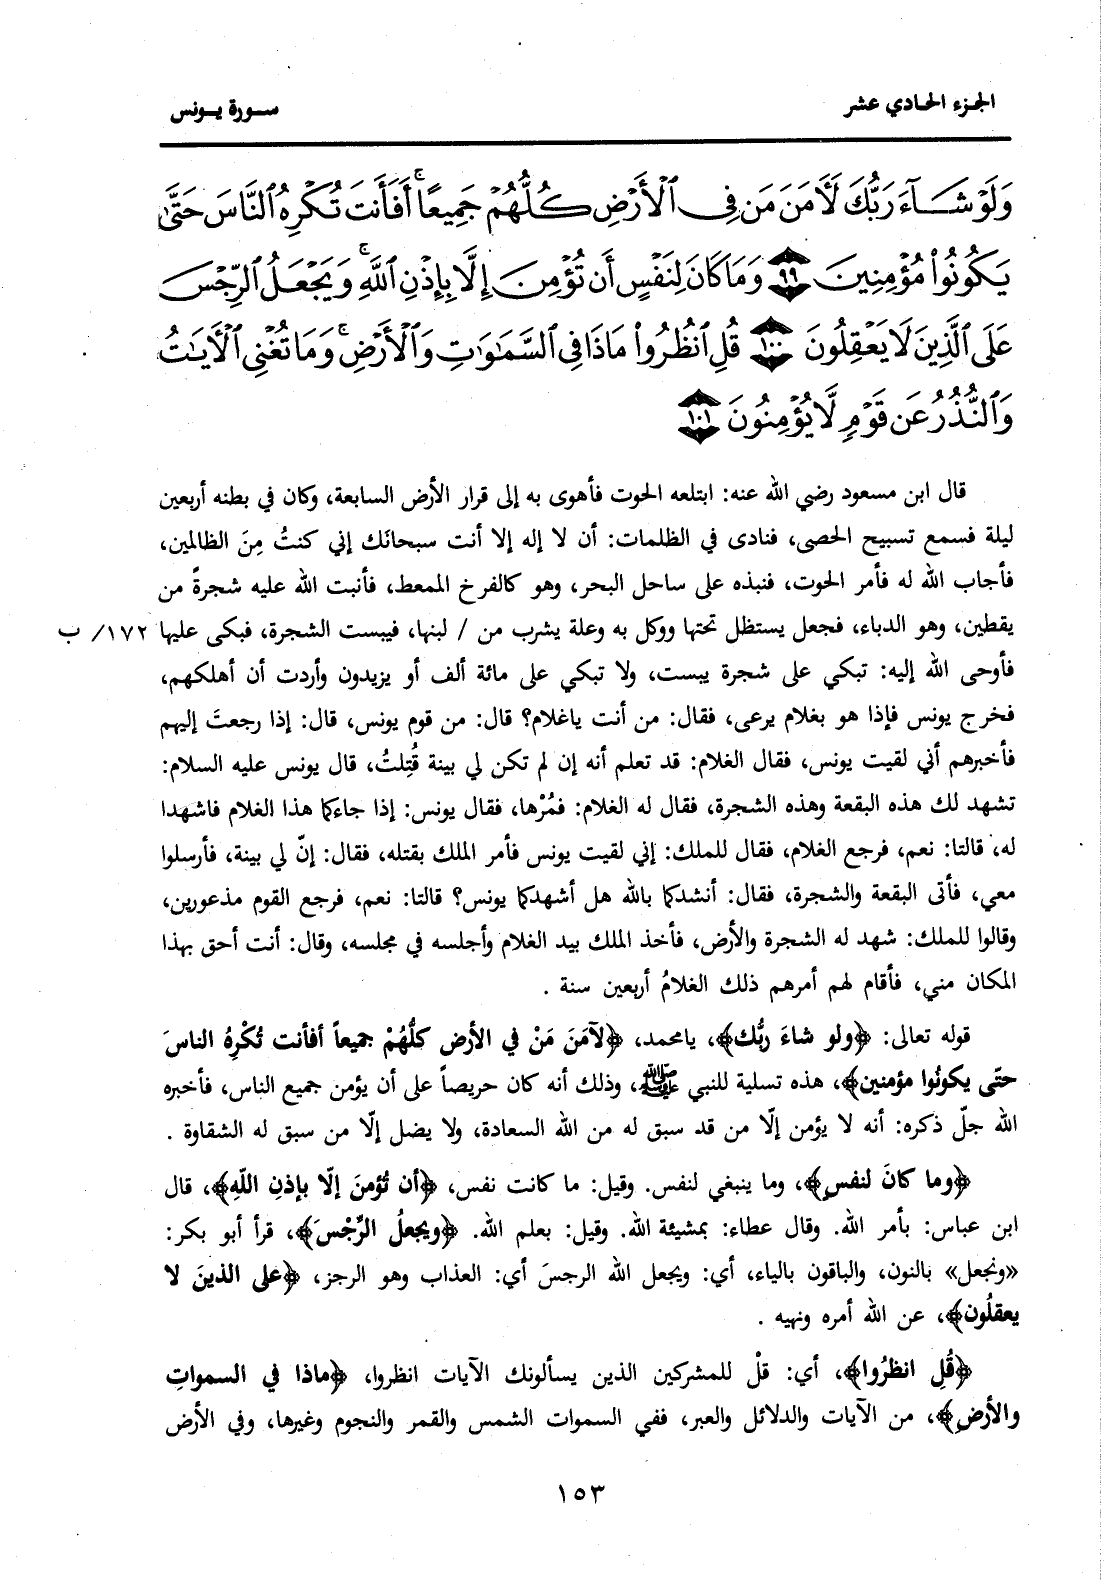 الجزء الحادي عشر
سورة يونس
وَلَوْ شَآءَ رَبُّكَ لَأٓمَنَ مَن فِى ٱلْأَرْضِ كُلُّهُمْ جَمِيعًا ۚ أَفَأَنتَ تُكْرِهُ ٱلنَّاسَ حَتَّىٰ
يَكُونُوا۟ مُؤْمِنِينَ ٩٩ وَمَا كَانَ لِنَفْسٍ أَن تُؤْمِنَ إِلَّا بِإِذْنِ ٱللَّهِ ۚ وَيَجْعَلُ ٱلرِّجْسَ
عَلَى ٱلَّذِينَ لَا يَعْقِلُونَ ١٠٠ قُلِ ٱنظُرُوا۟ مَاذَا فِى ٱلسَّمَٰوَٰتِ وَٱلْأَرْضِ ۚ وَمَا تُغْنِى ٱلْأٓيَٰتُ
وَٱلنُّذُرُ عَن قَوْمٍ لَّا يُؤْمِنُونَ ١٠١
قال ابن مسعود رضي الله عنه: ابتلعه الحوت فأهوى به إلى قرار الأرض السابعة، وكان في بطنه أربعين
ليلة فسمع تسبيح الحصى، فنادى في الظلمات: أن لا إله إلا أنت سبحانَك إني كنتُ مِنَ الظالمين،
فأجاب الله له فأمر الحوت، فنبذه على ساحل البحر، وهو كالفرخ الممعط، فأنبت الله عليه شجرةً من
يقطين، وهو الدباء، فجعل يستظل تحتها ووكل به وعلة يشرب من / لبنها، فيبست الشجرة، فبكى عليها ١٧٢/ ب
فأوحى الله إليه: تبكي على شجرة يبست، ولا تبكي على مائة ألف أو يزيدون وأردت أن أهلكهم،
فخرج يونس فإذا هو بغلام يرعى، فقال: من أنت ياغلام؟ قال: من قوم يونس، قال: إذا رجعتَ إليهم
فأخبرهم أني لقيت يونس، فقال الغلام: قد تعلم أنه إن لم تكن لي بينة قُتِلتُ، قال يونس عليه السلام:
تشهد لك هذه البقعة وهذه الشجرة، فقال له الغلام: فمُرْها، فقال يونس: إذا جاءكما هذا الغلام فاشهدا
له، قالتا: نعم، فرجع الغلام، فقال للملك: إني لقيت يونس فأمر الملك بقتله، فقال: إنّ لي بينة، فأرسلوا
معي، فأتى البقعة والشجرة، فقال: أنشدكما بالله هل أشهدكما يونس؟ قالتا: نعم، فرجع القوم مذعورين،
وقالوا للملك: شهد له الشجرة والأرض، فأخذ الملك بيد الغلام وأجلسه في مجلسه، وقال: أنت أحق بهذا
المكان مني، فأقام لهم أمرهم ذلك الغلامُ أربعين سنة .
قوله تعالى: ﴿ولو شاءَ ربُّك﴾، يامحمد، ﴿لآمَنَ مَنْ في الأرض كلُّهُمْ جميعاً أفأنت تُكْرِهُ الناسَ
حتّى يكونُوا مؤمنين﴾، هذه تسلية للنبي ﷺ، وذلك أنه كان حريصاً على أن يؤمن جميع الناس، فأخبره
الله جلّ ذكره: أنه لا يؤمن إلّا من قد سبق له من الله السعادة، ولا يضل إلّا من سبق له الشقاوة .
﴿وما كانَ لنفسٍ﴾، وما ينبغي لنفس. وقيل: ما كانت نفس، ﴿أن تُؤمنَ إلّا بإذنِ اللّهِ﴾، قال
ابن عباس: بأمر الله. وقال عطاء: بمشيئة الله. وقيل: بعلم الله. ﴿ويجعلُ الرِّجْسَ﴾، قرأ أبو بكر:
«ونجعل» بالنون، والباقون بالياء، أي: ويجعل الله الرجسَ أي: العذاب وهو الرجز، ﴿على الذينَ لا
يعقلُون﴾، عن الله أمره ونهيه .
﴿قُلِ انظرُوا﴾، أي: قلْ للمشركين الذين يسألونك الآيات انظروا، ﴿ماذا في السمواتِ
والأرضِ﴾، من الآيات والدلائل والعبر، ففي السموات الشمس والقمر والنجوم وغيرها، وفي الأرض
١٥٣